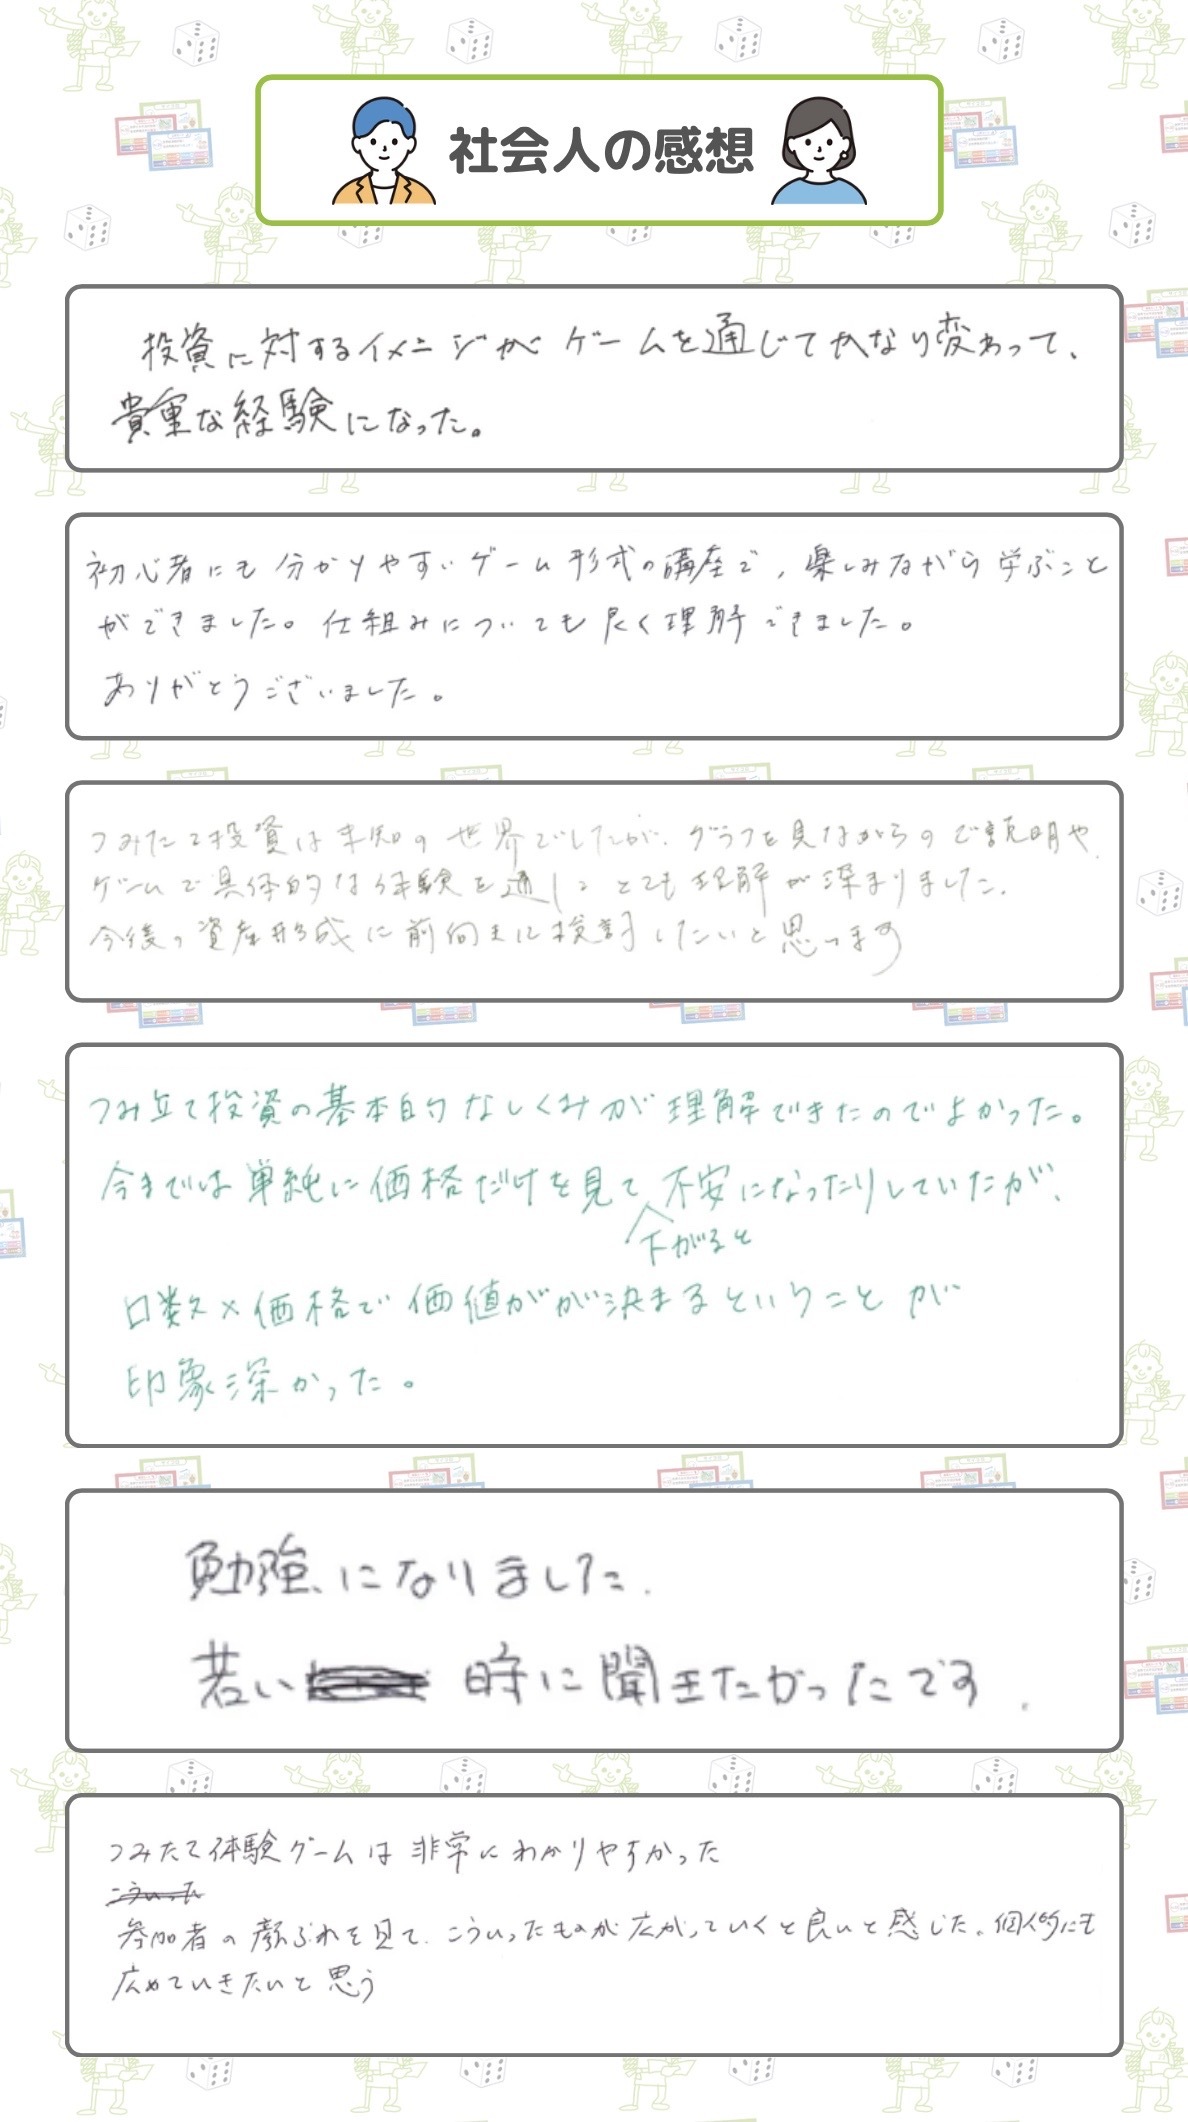 社会人の感想
投資に対するイメージがゲームを通じてかなり変わって、
貴重な経験になった。
初心者にも分かりやすいゲーム形式の講座で、楽しみながら学ぶこと
ができました。仕組みについても良く理解できました。
ありがとうございました。
つみたて投資は未知の世界でしたが、グラフを見ながらのご説明や、
ゲームで具体的な体験を通しことても理解が深まりました。
今後の資産形成に前向きに検討したいと思います
つみ立て投資の基本的なしくみが理解できたのでよかった。
今までは単純に価格だけを見て不安になったりしていたが、
下がると
口数×価格で価値がが決まるということが
印象深かった。
勉強になりました.
若い 時に聞きたかったです.
つみたて体験ゲームは非常にわかりやすかった
こういった
参加者の顔ぶれを見て、こういったものが広がっていくと良いと感じた。個人的にも
広めていきたいと思う